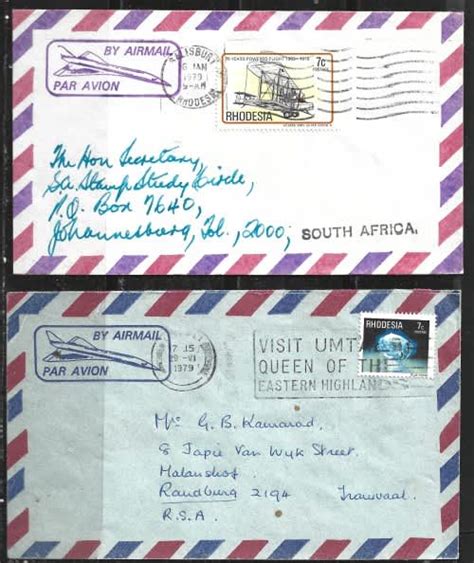 BY AIRMAIL
PAR AVION
SALISBURY
6 JAN
1979
9-AM
RHODESIA
75 YEARS POWERED FLIGHT 1903-1978
7c
RHODESIA
The Hon Secretary,
S.A. Stamp Study Circle,
P.O. Box 7640,
Johannesburg, , 2000;
SOUTH AFRICA.
BY AIRMAIL
PAR AVION
7 15
29 VI
1979
VISIT UMT
QUEEN OF TH
EASTERN HIGHLAN
RHODESIA
7c
Mr G. B. Kamarad
8 Japie Van Wyk Street.
Malanshof.
Randburg 2194 Transvaal
R.S.A.